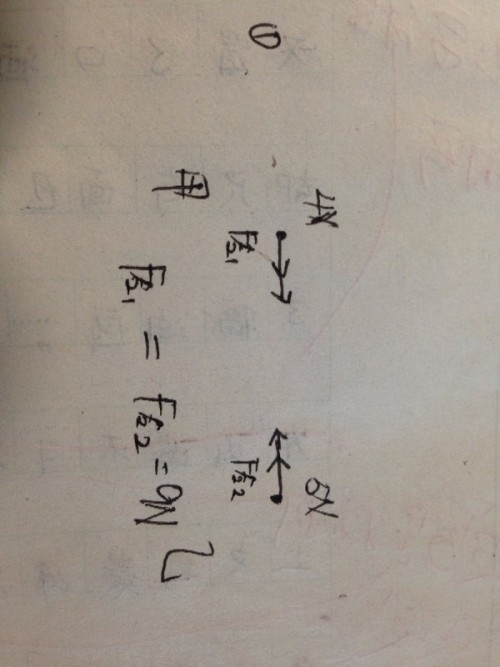 ①
4N 5N
F合1 F合2
甲 乙
F合1 = F合2 = 9N